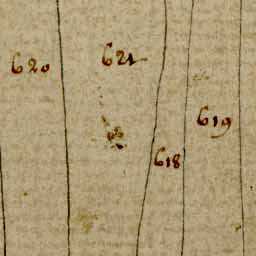 620
621
619
618